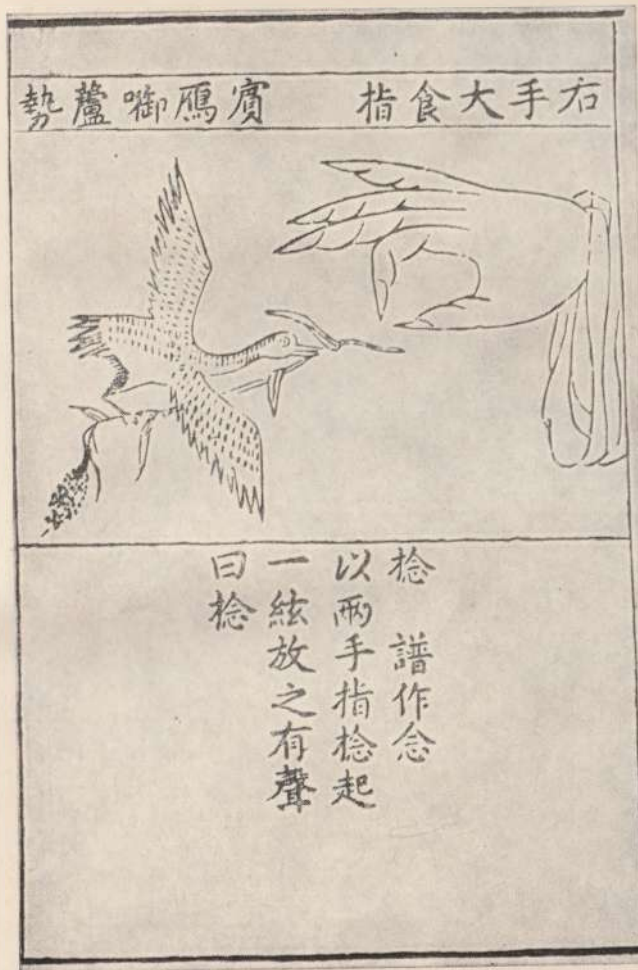 右手大食指　賓鴈啣蘆勢
捻　譜作念
以兩手指捻起
一絃放之有聲
曰捻